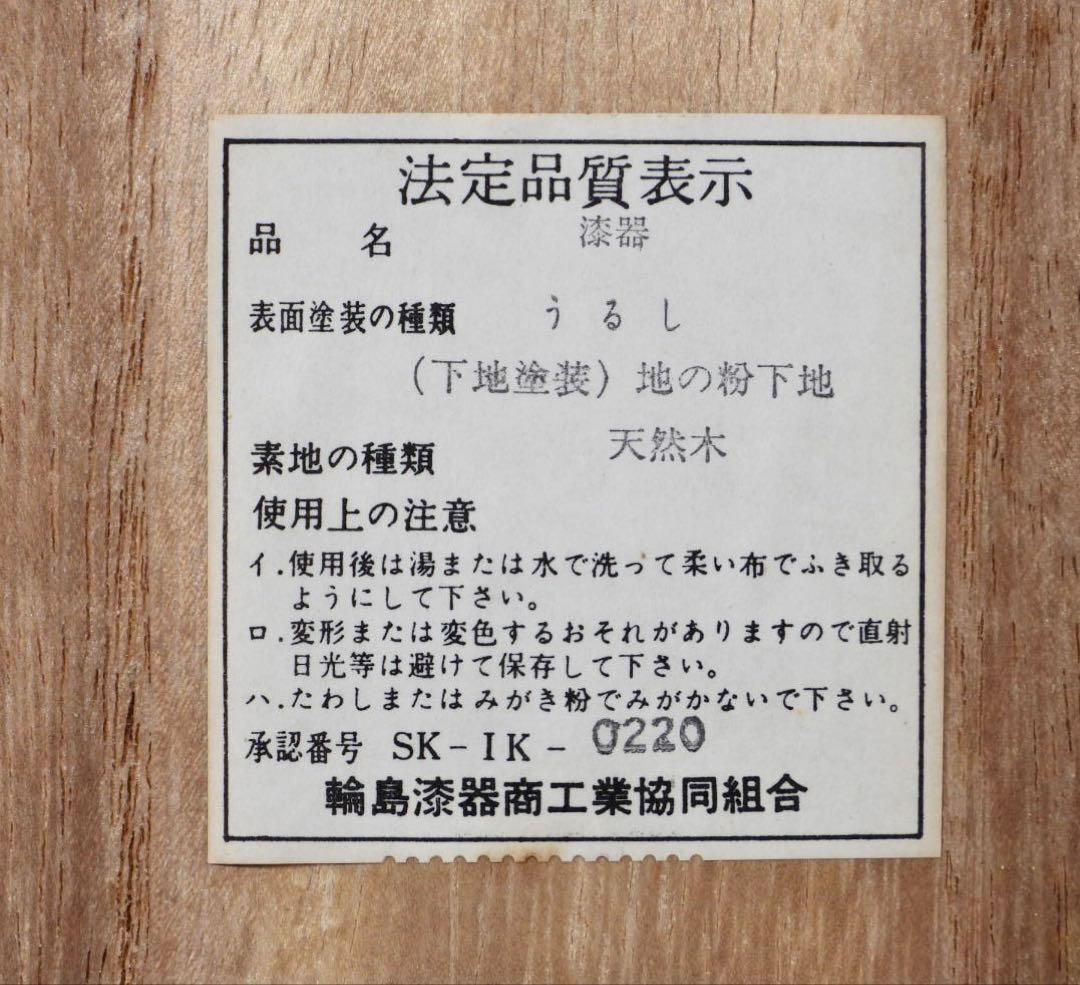 法定品質表示
品名 漆器
表面塗装の種類 うるし
(下地塗装) 地の粉下地
素地の種類 天然木
使用上の注意
イ.使用後は湯または水で洗って柔い布でふき取る
ようにして下さい。
ロ.変形または変色するおそれがありますので直射
日光等は避けて保存して下さい。
ハ.たわしまたはみがき粉でみがかないで下さい。
承認番号 SK-IK-0220
輪島漆器商工業協同組合